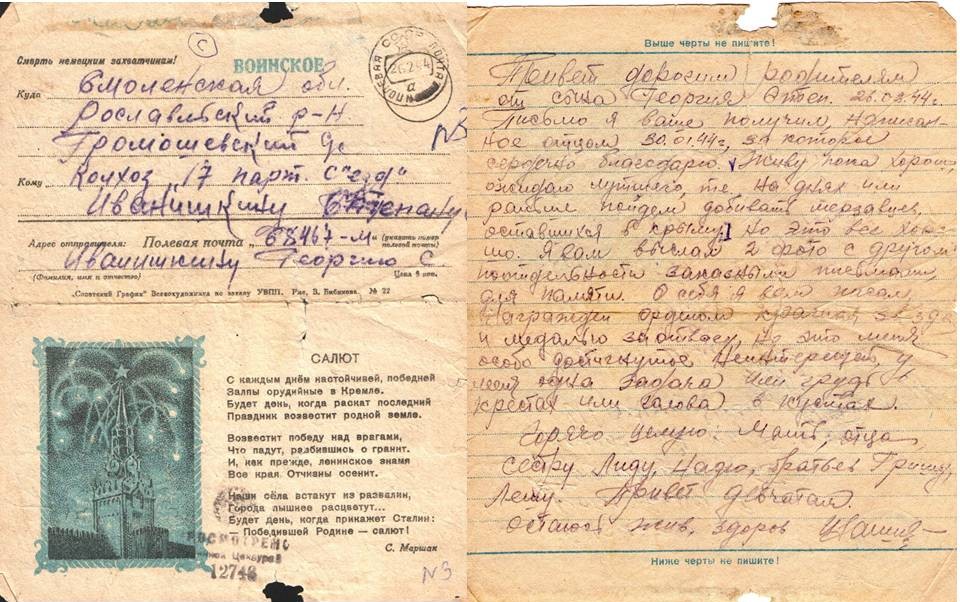 Смерть немецким захватчикам!
С
ВОИНСКОЕ
ПОЛЕВАЯ ПОЧТА
26.2.44
а
Куда Смоленская обл.
Рославльский р-н
Громошевский
Кому Колхоз „17 парт. с"езд"
Иванишкину Степану
Адрес отправителя: Полевая почта „68467-м" (указать номер полевой почты)
Иванишкину Георгию С
(Фамилия, имя и отчество) Цена 5 коп.
„Советский График" Всекохудожника по заказу УВПП. Рис. В. Бибикова. № 22
САЛЮТ
С каждым днём настойчивей, победней
Залпы орудийные в Кремле.
Будет день, когда раскат последний
Праздник возвестит родной земле.
Возвестит победу над врагами,
Что падут, разбившись о гранит.
И, как прежде, ленинское знамя
Все края Отчизны осенит.
Наши сёла встанут из развалин,
Города пышнее расцветут...
Будет день, когда прикажет Сталин:
— Победившей Родине — салют!
С. Маршак
ПРОСМОТРЕНО
Военной Цензурой
12743
N3
Выше черты не пишите!
Привет дорогим родителям
от сына Георгия Степ. 26.02.44г.
Письмо я ваше получил, написан-
ное отцом 30.01.44г, за которое
сердечно благодарю. Живу пока хорошо,
ожидаю лутшего, те. на днях или
раньше пойдем добивать мерзавцев,
оставшихся в крыму, но это все хоро-
шо. Я вам выслал 2 фото с другом
по отдельности заказными письмами,
для памяти. О себе я вам писал,
Награжден орденом красная звезда
и медалью за отвагу, но это меня
особо достигнутое неинтересует, у
меня одна задача или грудь в
крестах или голова в кустах.
Горячо целую: Мать, отца,
сестру Лиду, Надю, братьев Гришу,
Лешу. Привет девчатам.
остаюсь жив, здоров
Ниже черты не пишите!